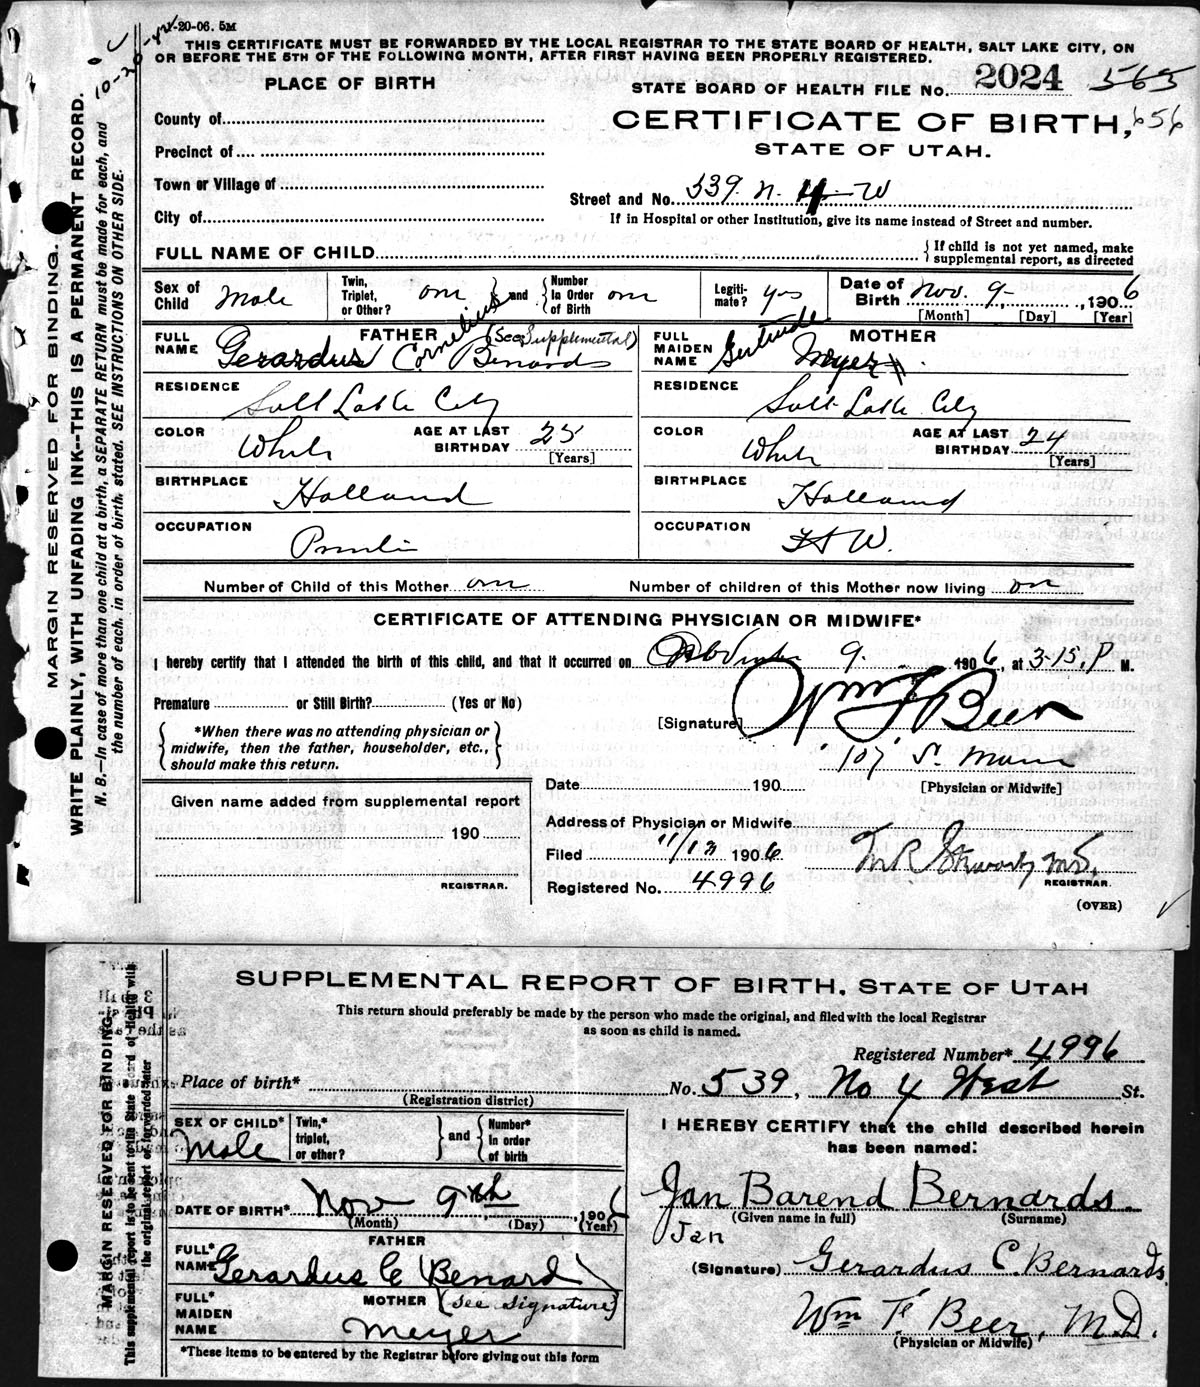 1-20-06. 5M
THIS CERTIFICATE MUST BE FORWARDED BY THE LOCAL REGISTRAR TO THE STATE BOARD OF HEALTH, SALT LAKE CITY, ON
OR BEFORE THE 5TH OF THE FOLLOWING MONTH, AFTER FIRST HAVING BEEN PROPERLY REGISTERED.
PLACE OF BIRTH
STATE BOARD OF HEALTH FILE No. 2024 565
County of
CERTIFICATE OF BIRTH, 656
Precinct of
STATE OF UTAH.
Town or Village of
Street and No. 539 N. 4 W
City of
If in Hospital or other Institution, give its name instead of Street and number.
FULL NAME OF CHILD
{ If child is not yet named, make supplemental report, as directed
Sex of Child Male Twin, Triplet, or Other? one and Number In Order of Birth one Legiti-mate? yes Date of Birth Nov. 9- , 1906
[Month] [Day] [Year]
FULL NAME FATHER Gerardus Cornelius Benards (See Supplemental)
FULL MAIDEN NAME MOTHER Gertrude Meyer
RESIDENCE Salt Lake City
RESIDENCE Salt Lake City
COLOR White AGE AT LAST BIRTHDAY 25 [Years]
COLOR White AGE AT LAST BIRTHDAY 24 [Years]
BIRTHPLACE Holland
BIRTHPLACE Holland
OCCUPATION
OCCUPATION H W.
Number of Child of this Mother one Number of children of this Mother now living one
CERTIFICATE OF ATTENDING PHYSICIAN OR MIDWIFE*
I hereby certify that I attended the birth of this child, and that it occurred on November 9. 1906, at 3-15, P M.
Premature or Still Birth? (Yes or No)
[Signature] Wm F Beer
*When there was no attending physician or midwife, then the father, householder, etc., should make this return.
107 S. Main
Date 190 [Physician or Midwife]
Given name added from supplemental report
190
Address of Physician or Midwife
Filed 11/13 1906
REGISTRAR.
REGISTRAR.
Registered No. 4996
(OVER)
MARGIN RESERVED FOR BINDING.
WRITE PLAINLY, WITH UNFADING INK--THIS IS A PERMANENT RECORD.
N. B.—In case of more than one child at a birth, a SEPARATE RETURN must be made for each, and
the number of each, in order of birth, stated. SEE INSTRUCTIONS ON OTHER SIDE.
SUPPLEMENTAL REPORT OF BIRTH, STATE OF UTAH
This return should preferably be made by the person who made the original, and filed with the local Registrar
as soon as child is named.
Registered Number* 4996
Place of birth* No. 539, No 4 West St.
(Registration district)
SEX OF CHILD* Male Twin,* triplet, or other? and Number* In order of birth
I HEREBY CERTIFY that the child described herein
has been named:
Jan Barend Bernards.
(Given name in full) (Surname)
Jan
DATE OF BIRTH* Nov 9th , 1906
(Month) (Day) (Year)
FATHER
FULL* NAME Gerardus C Benard
(Signature) Gerardus C. Bernards.
FULL* MAIDEN NAME MOTHER (see signature)
Meyer
Wm F. Beer, M.D.
(Physician or Midwife)
*These items to be entered by the Registrar before giving out this form
MARGIN RESERVED FOR BINDING.
This supplemental report is to be sent to the State Board of Health with
the original report or forwarded later